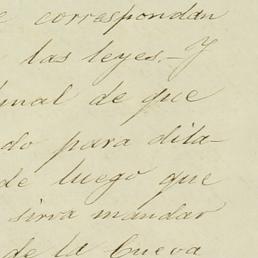 e correspondan
las leyes.- Y
unal de que
do para dila-
de luego que
sirva mandar
de la Cueva